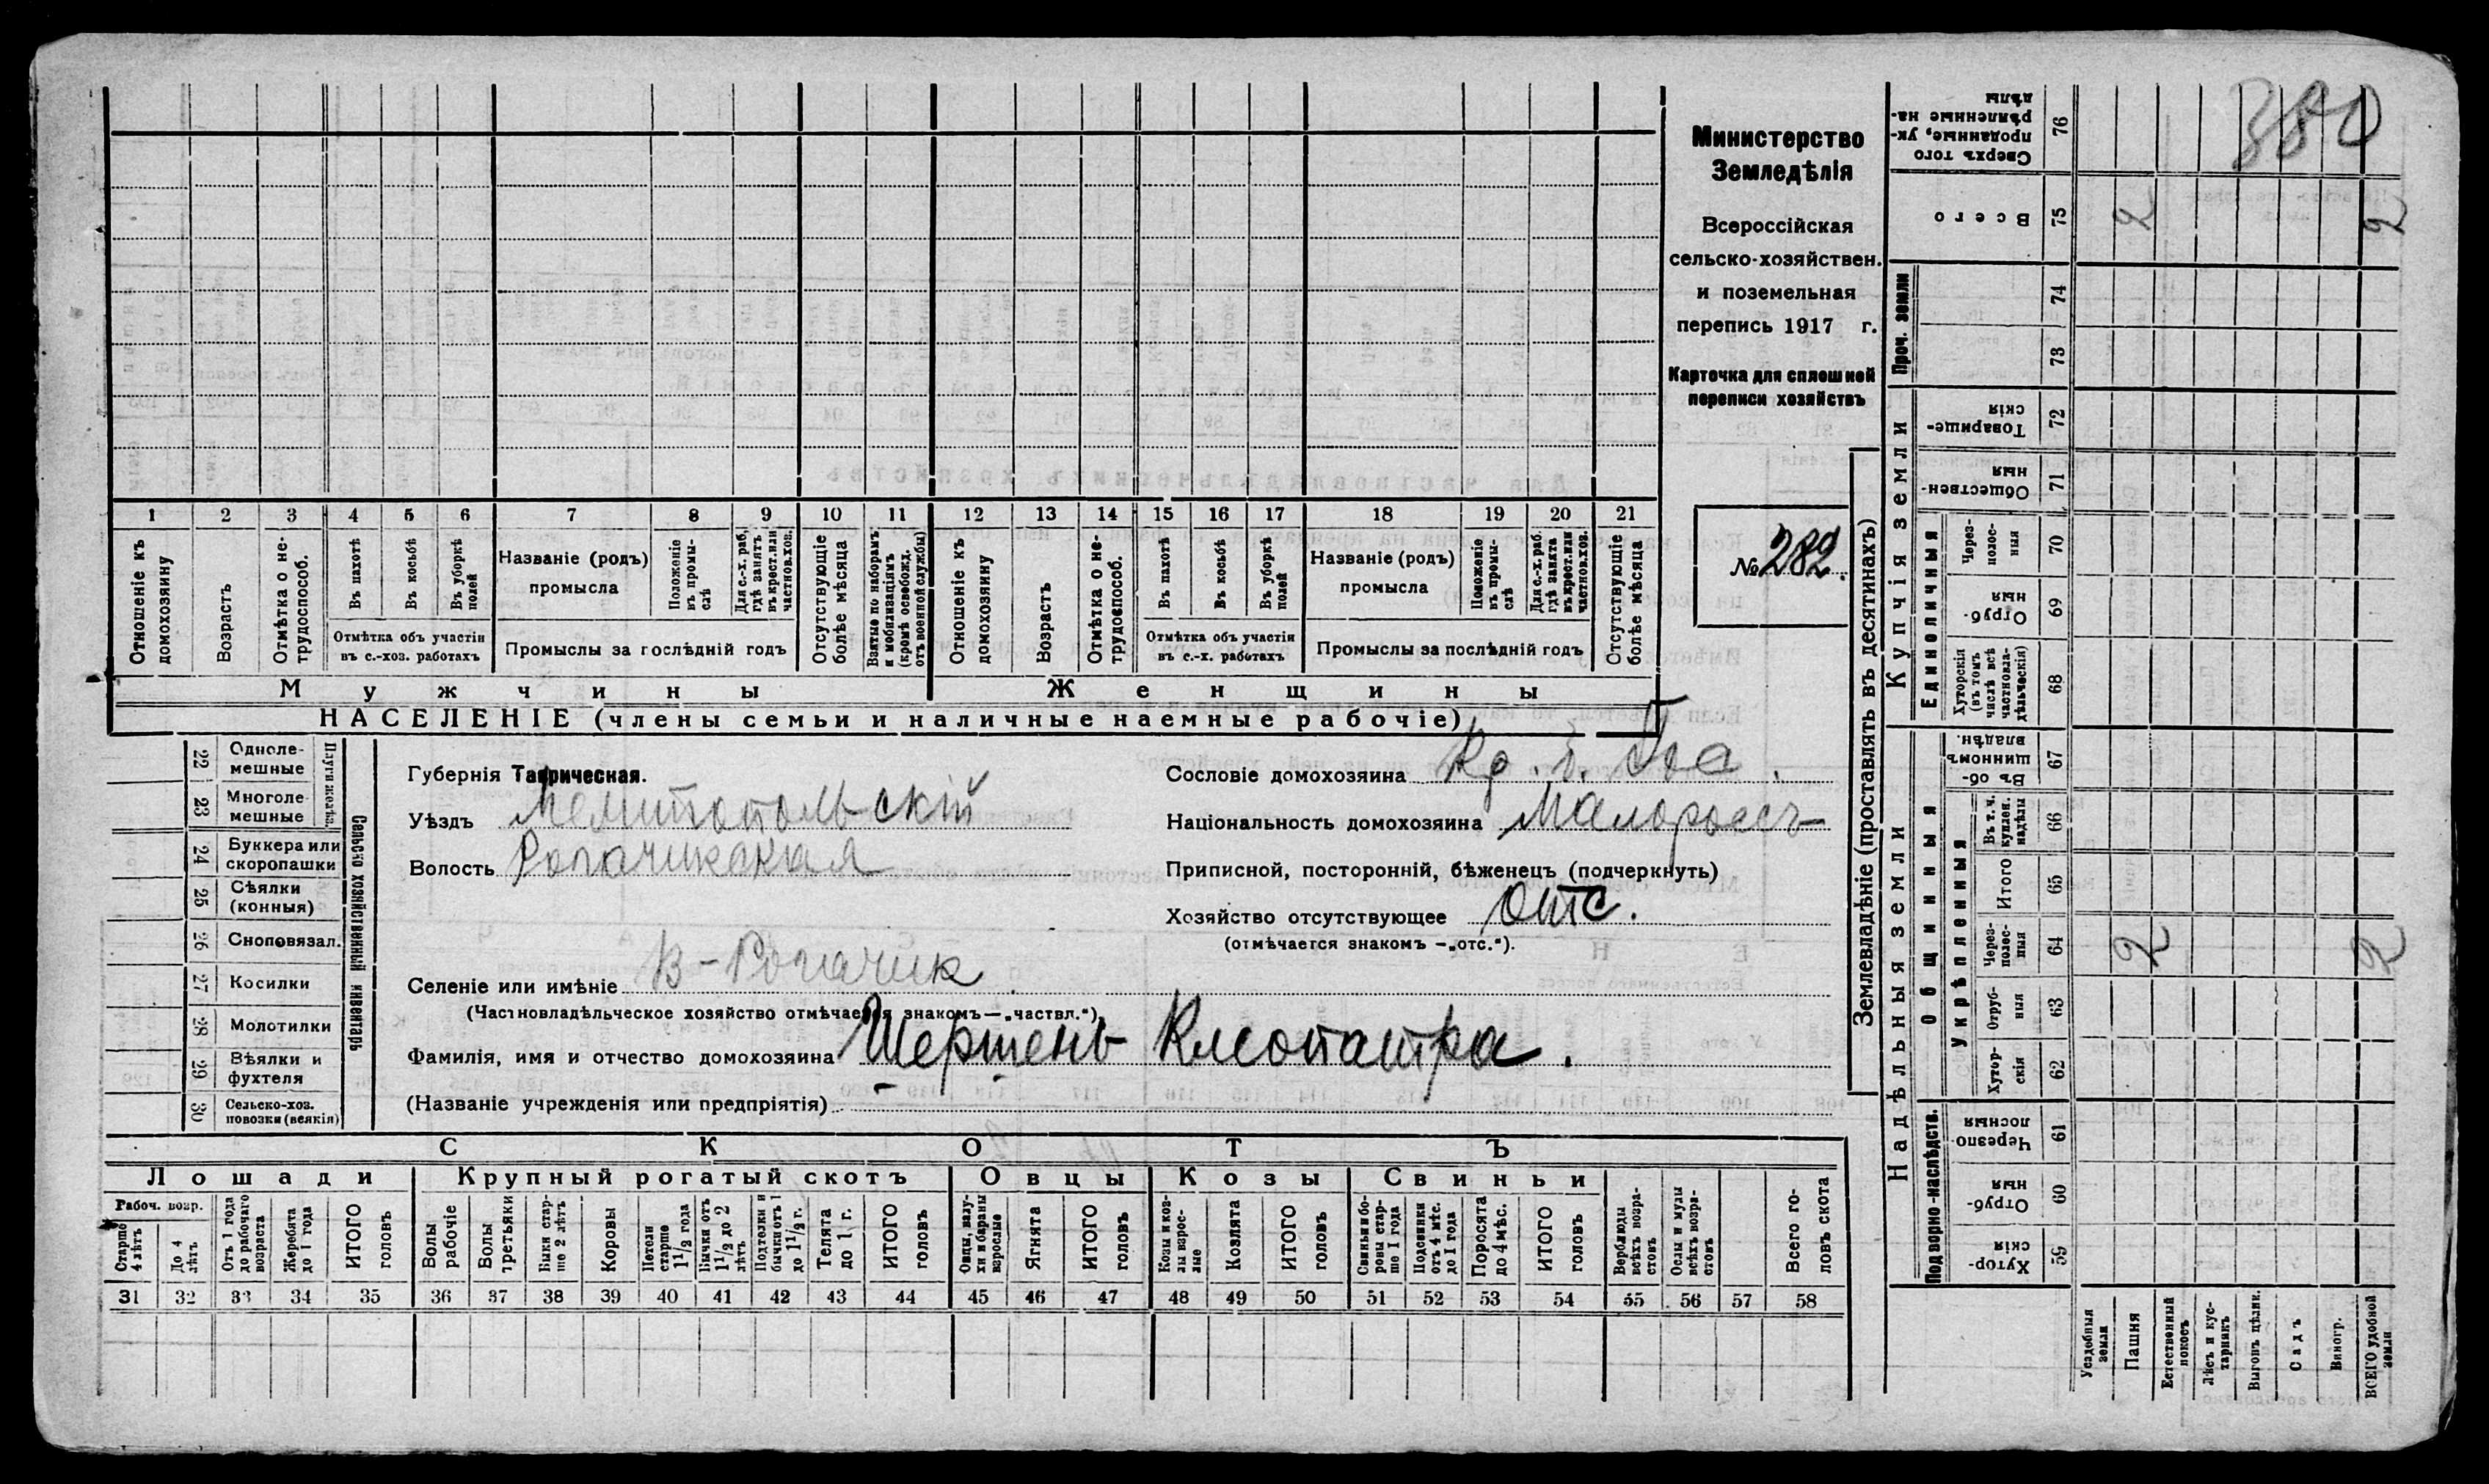 Министерство
Земледѣлія
Всероссійская
сельско-хозяйствен.
и поземельная
перепись 1917 г.
Карточка для сплошной
переписи хозяйствъ
№ 282.
380
1 2 3 4 5 6 7 8 9 10 11 12 13 14 15 16 17 18 19 20 21
Отношеніе къ домохозяину
Возрастъ
Отмѣтка о не-трудоспособ.
Въ пахотѣ
Въ косьбѣ
Въ уборкѣ полей
Отмѣтка объ участіи въ с.-хоз. работахъ
Названіе (родъ) промысла
Положеніе въ промы-слѣ
Для с.-х. раб. гдѣ занятъ въ крест. или частнов. хоз.
Промыслы за послѣдній годъ
Отсутствующіе болѣе мѣсяца
Взятые по наборамъ и мобилизаціямъ (кромѣ освобожд. отъ военной службы)
Отношеніе къ домохозяину
Возрастъ
Отмѣтка о не-трудоспособ.
Въ пахотѣ
Въ косьбѣ
Въ уборкѣ полей
Отмѣтка объ участіи въ с.-х. работахъ
Названіе (родъ) промысла
Положеніе въ промы-слѣ
Для с.-х. раб. гдѣ занята въ крест. или частнов. хоз.
Промыслы за послѣдній годъ
Отсутствующіе болѣе мѣсяца
Мужчины
Женщины
НАСЕЛЕНІЕ (члены семьи и наличные наемные рабочіе)
22 Одноле-мешные
23 Многоле-мешные
Плуги желѣз.
24 Буккера или скоропашки
25 Сѣялки (конныя)
26 Сноповязал.
27 Косилки
28 Молотилки
29 Вѣялки и фухтеля
30 Сельско-хоз. повозки (всякія)
Сельско хозяйственный инвентарь
Губернія Таврическая.
Уѣздъ Мелитопольскій
Волость Рогачикская
Селеніе или имѣніе В-Рогачик
(Частновладѣльческое хозяйство отмѣчается знакомъ—„частвл.“).
Фамилія, имя и отчество домохозяина Шершень Клеопатра.
(Названіе учрежденія или предпріятія)
Сословіе домохозяина Кр.
Національность домохозяина Малороссъ
Приписной, посторонній, бѣженецъ (подчеркнуть)
Хозяйство отсутствующее отс.
(отмѣчается знакомъ —„отс.“).
СКОТЪ
Лошади
Крупный рогатый скотъ
Овцы
Козы
Свиньи
Рабоч. возр.
Старше 4 лѣтъ
До 4 лѣтъ
Отъ 1 года до рабочаго возраста
Жеребята до 1 года
ИТОГО головъ
Волы рабочіе
Волы третьяки
Быки стар-ше 2 лѣтъ
Коровы
Нетели старше 1 1/2 года
Бычки отъ 1 1/2 до 2 лѣтъ
Подтелки и бычки отъ 1 до 1 1/2 г.
Телята до 1 г.
ИТОГО головъ
Овцы, валу-хи и бараны взрослые
Ягнята
ИТОГО головъ
Козы и коз-лы взрос-лые
Козлята
ИТОГО головъ
Свиньи и бо-ровы стар-ше 1 года
Подсвинки отъ 4 мѣс. до 1 года
Поросята до 4 мѣс.
ИТОГО головъ
Верблюды всѣхъ возра-стовъ
Ослы и мулы всѣхъ возра-стовъ
Всего го-ловъ скота
31 32 33 34 35 36 37 38 39 40 41 42 43 44 45 46 47 48 49 50 51 52 53 54 55 56 57 58
Землевладѣніе (проставлять въ десятинахъ)
Надѣльныя земли
Купчія земли
Проч. земли
Подворно-наслѣдств.
Общинныя
Укрѣпленныя
Единоличныя
76 Сверхъ того проданные, ук-рѣпленные на-дѣлы
75 Всего 2 2
74
73
72 Товарище-скія
71 Обществен-ныя
70 Через-полос-ныя
69 Отруб-ныя
68 Хуторскія (въ томъ числѣ всѣ частновла-дѣльческія)
67 Въ об-щинномъ владѣн.
66 Въ т. ч. куплен. надѣлы
65 Итого
64 Через-полос-ныя 2 2
63 Отруб-ныя
62 Хутор-скія
61 Черезпо-лосныя
60 Отруб-ныя
59 Хутор-скія
Усадебныя земли
Пашня
Естественный покосъ
Лѣсъ и кус-тарникъ
Выгонъ цѣлик.
Садъ
Виногр.
ВСЕГО удобной земли